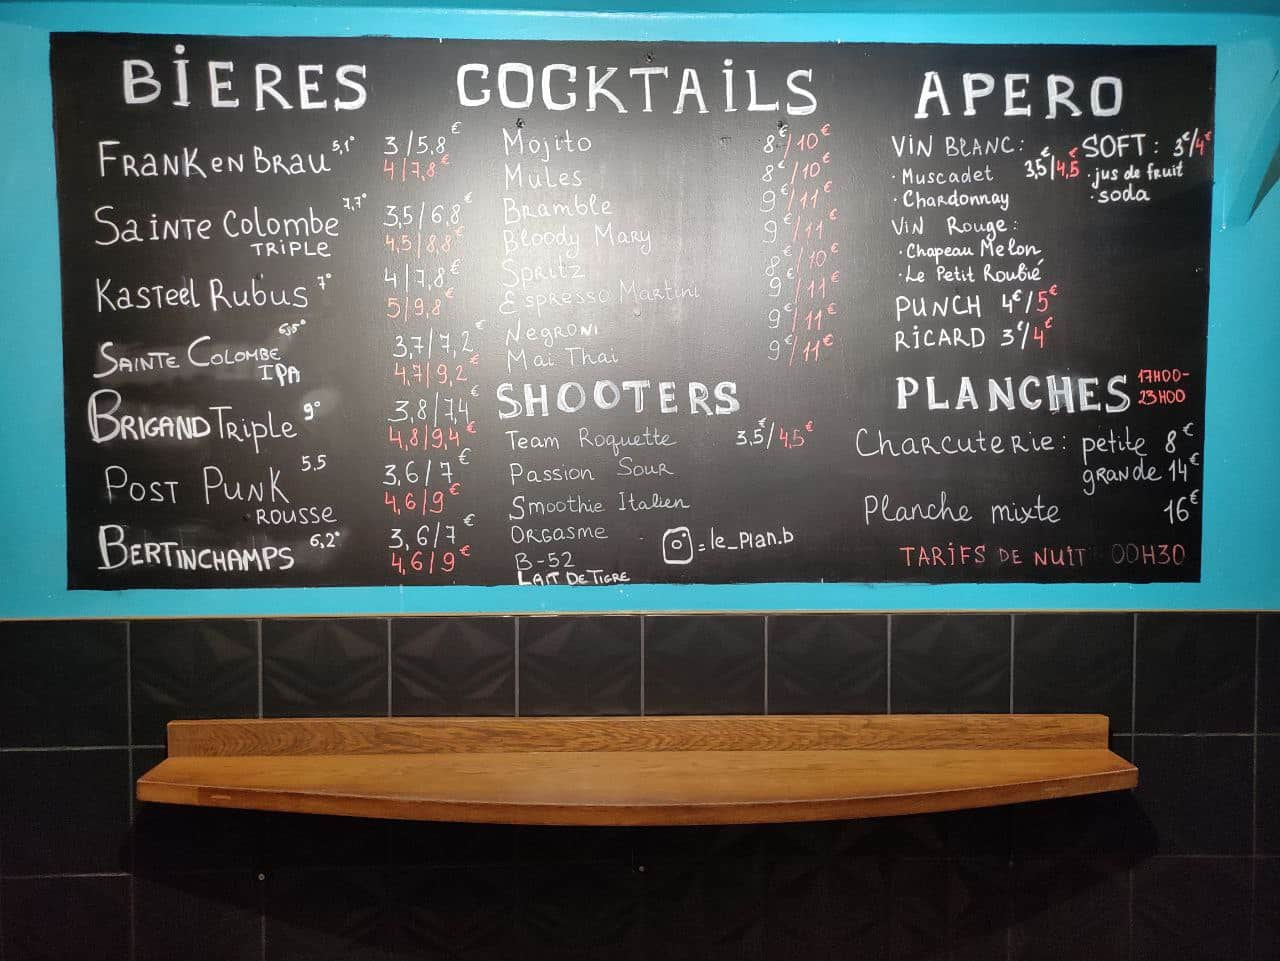 BIERES
FRANKENBRAU 5,1° 3/5,8€
4/7,8€
SAINTE Colombe 7,7° 3,5/6,8€
TRIPLE 4,5/8,8€
KASTEEL RUBUS 7° 4/7,8€
5/9,8€
SAINTE COLOMBE 6,5° 3,7/7,2€
IPA 4,7/9,2€
BRIGAND TRIPLE 9° 3,8/7,4€
4,8/9,4€
POST PUNK 5.5 3,6/7€
ROUSSE 4,6/9€
BERTINCHAMPS 6,2° 3,6/7€
4,6/9€
COCKTAILS
Mojito 8€/10€
Mules 8€/10€
Bramble 9€/11€
Bloody Mary 9€/11€
Spritz 8€/10€
Espresso Martini 9€/11€
Negroni 9€/11€
Mai Thai 9€/11€
SHOOTERS
Team Roquette 3,5€/4,5€
Passion Sour
Smoothie Italien
Orgasme
B-52
LAIT DE TIGRE
= le_Plan.b
APERO
VIN BLANC: 3,5€/4,5€
· Muscadet
· Chardonnay
VIN Rouge:
· Chapeau Melon
· Le Petit Roubié
SOFT: 3€/4€
· jus de fruit
· soda
PUNCH 4€/5€
RICARD 3€/4€
PLANCHES 17H00-
23H00
Charcuterie: petite 8€
grande 14€
Planche mixte 16€
TARIFS DE NUIT 00H30